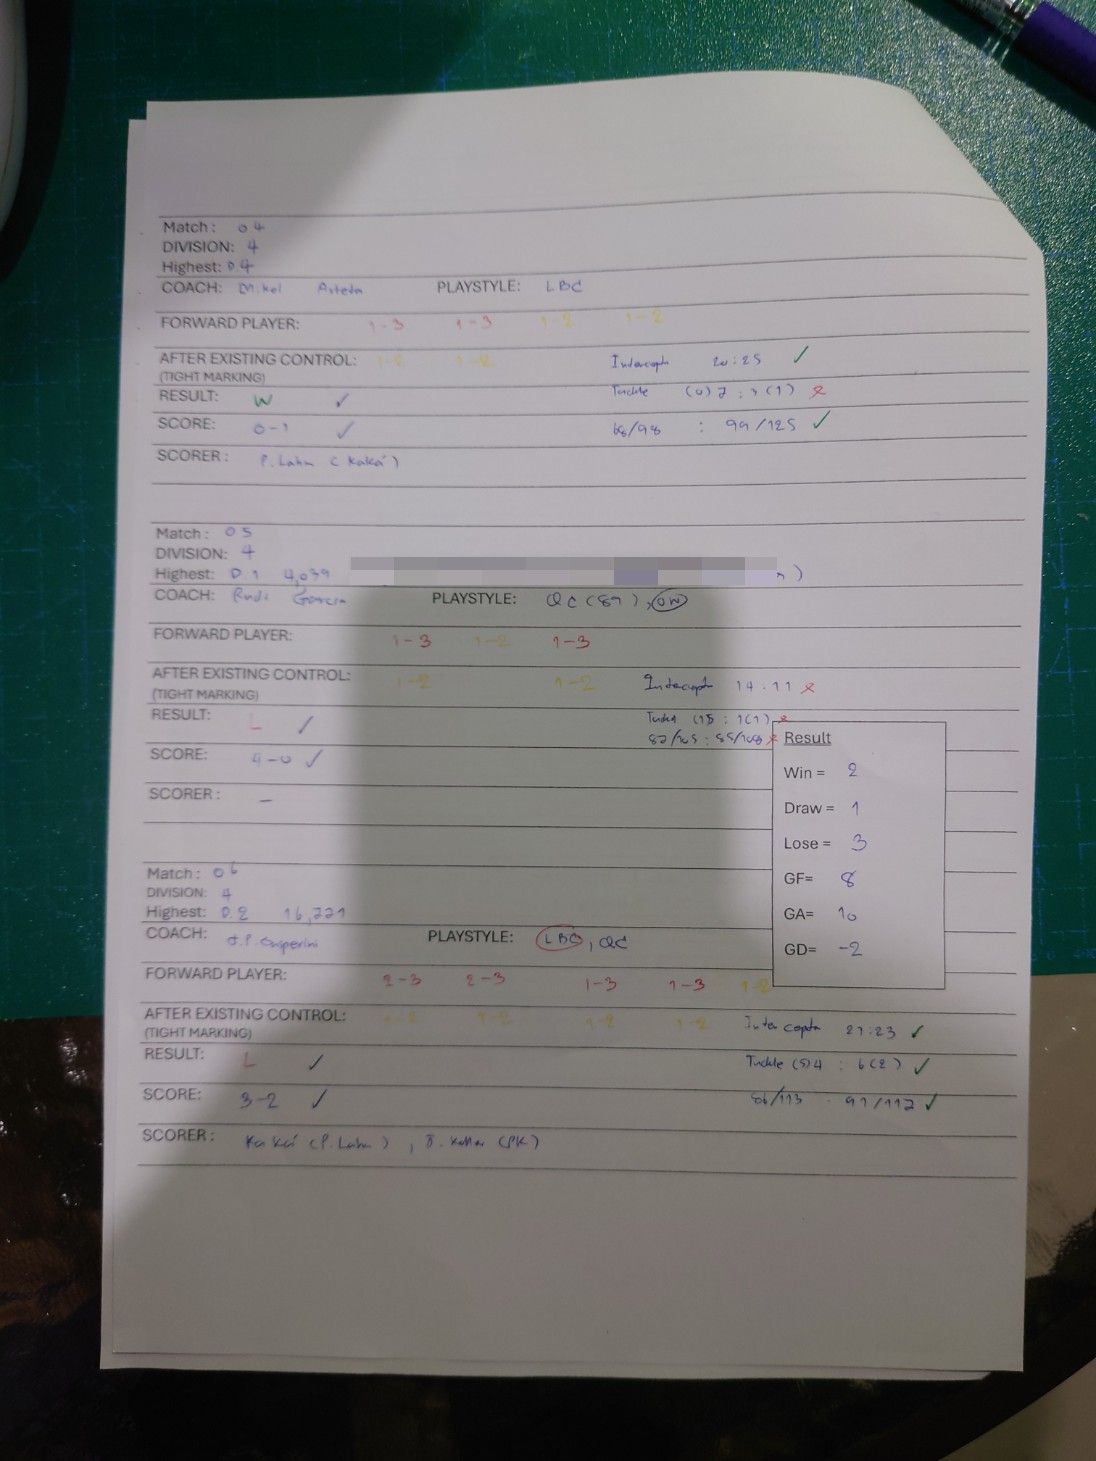 Match: 04
DIVISION: 4
Highest: D.4
COACH: Mikel Arteta PLAYSTYLE: LBC
FORWARD PLAYER: 1-3 1-3 1-2 1-2
AFTER EXISTING CONTROL: 1-2 1-2 Intercept 20:25 ✓
(TIGHT MARKING)
RESULT: W ✓ Tackle
SCORE: 0-1 ✓ 68/98 : 99/125 ✓
SCORER: P. Lahm (Kaká)
Match: 05
DIVISION: 4
Highest: D.1 4,039
COACH: Rudi Garcia PLAYSTYLE: QC (89), OW
FORWARD PLAYER: 1-3 1-2 1-3
AFTER EXISTING CONTROL: 1-2 1-2 Intercept 14:11 x
(TIGHT MARKING)
RESULT: L ✓
SCORE: 4-0 ✓
SCORER: -
Result
Win = 2
Draw = 1
Lose = 3
GF= 8
GA= 10
GD= -2
Match: 06
DIVISION: 4
Highest: D.2 16,221
COACH: PLAYSTYLE: LBC, QC
FORWARD PLAYER: 2-3 2-3 1-3 1-3 1-2
AFTER EXISTING CONTROL: 1-2 1-2 1-2 1-2 Intercept 21:23 ✓
(TIGHT MARKING)
RESULT: L ✓ Tackle (5)4 : 6(2) ✓
SCORE: 3-2 ✓ 86/113 : 91/112 ✓
SCORER: Kaká (P. Lahm), (PK)